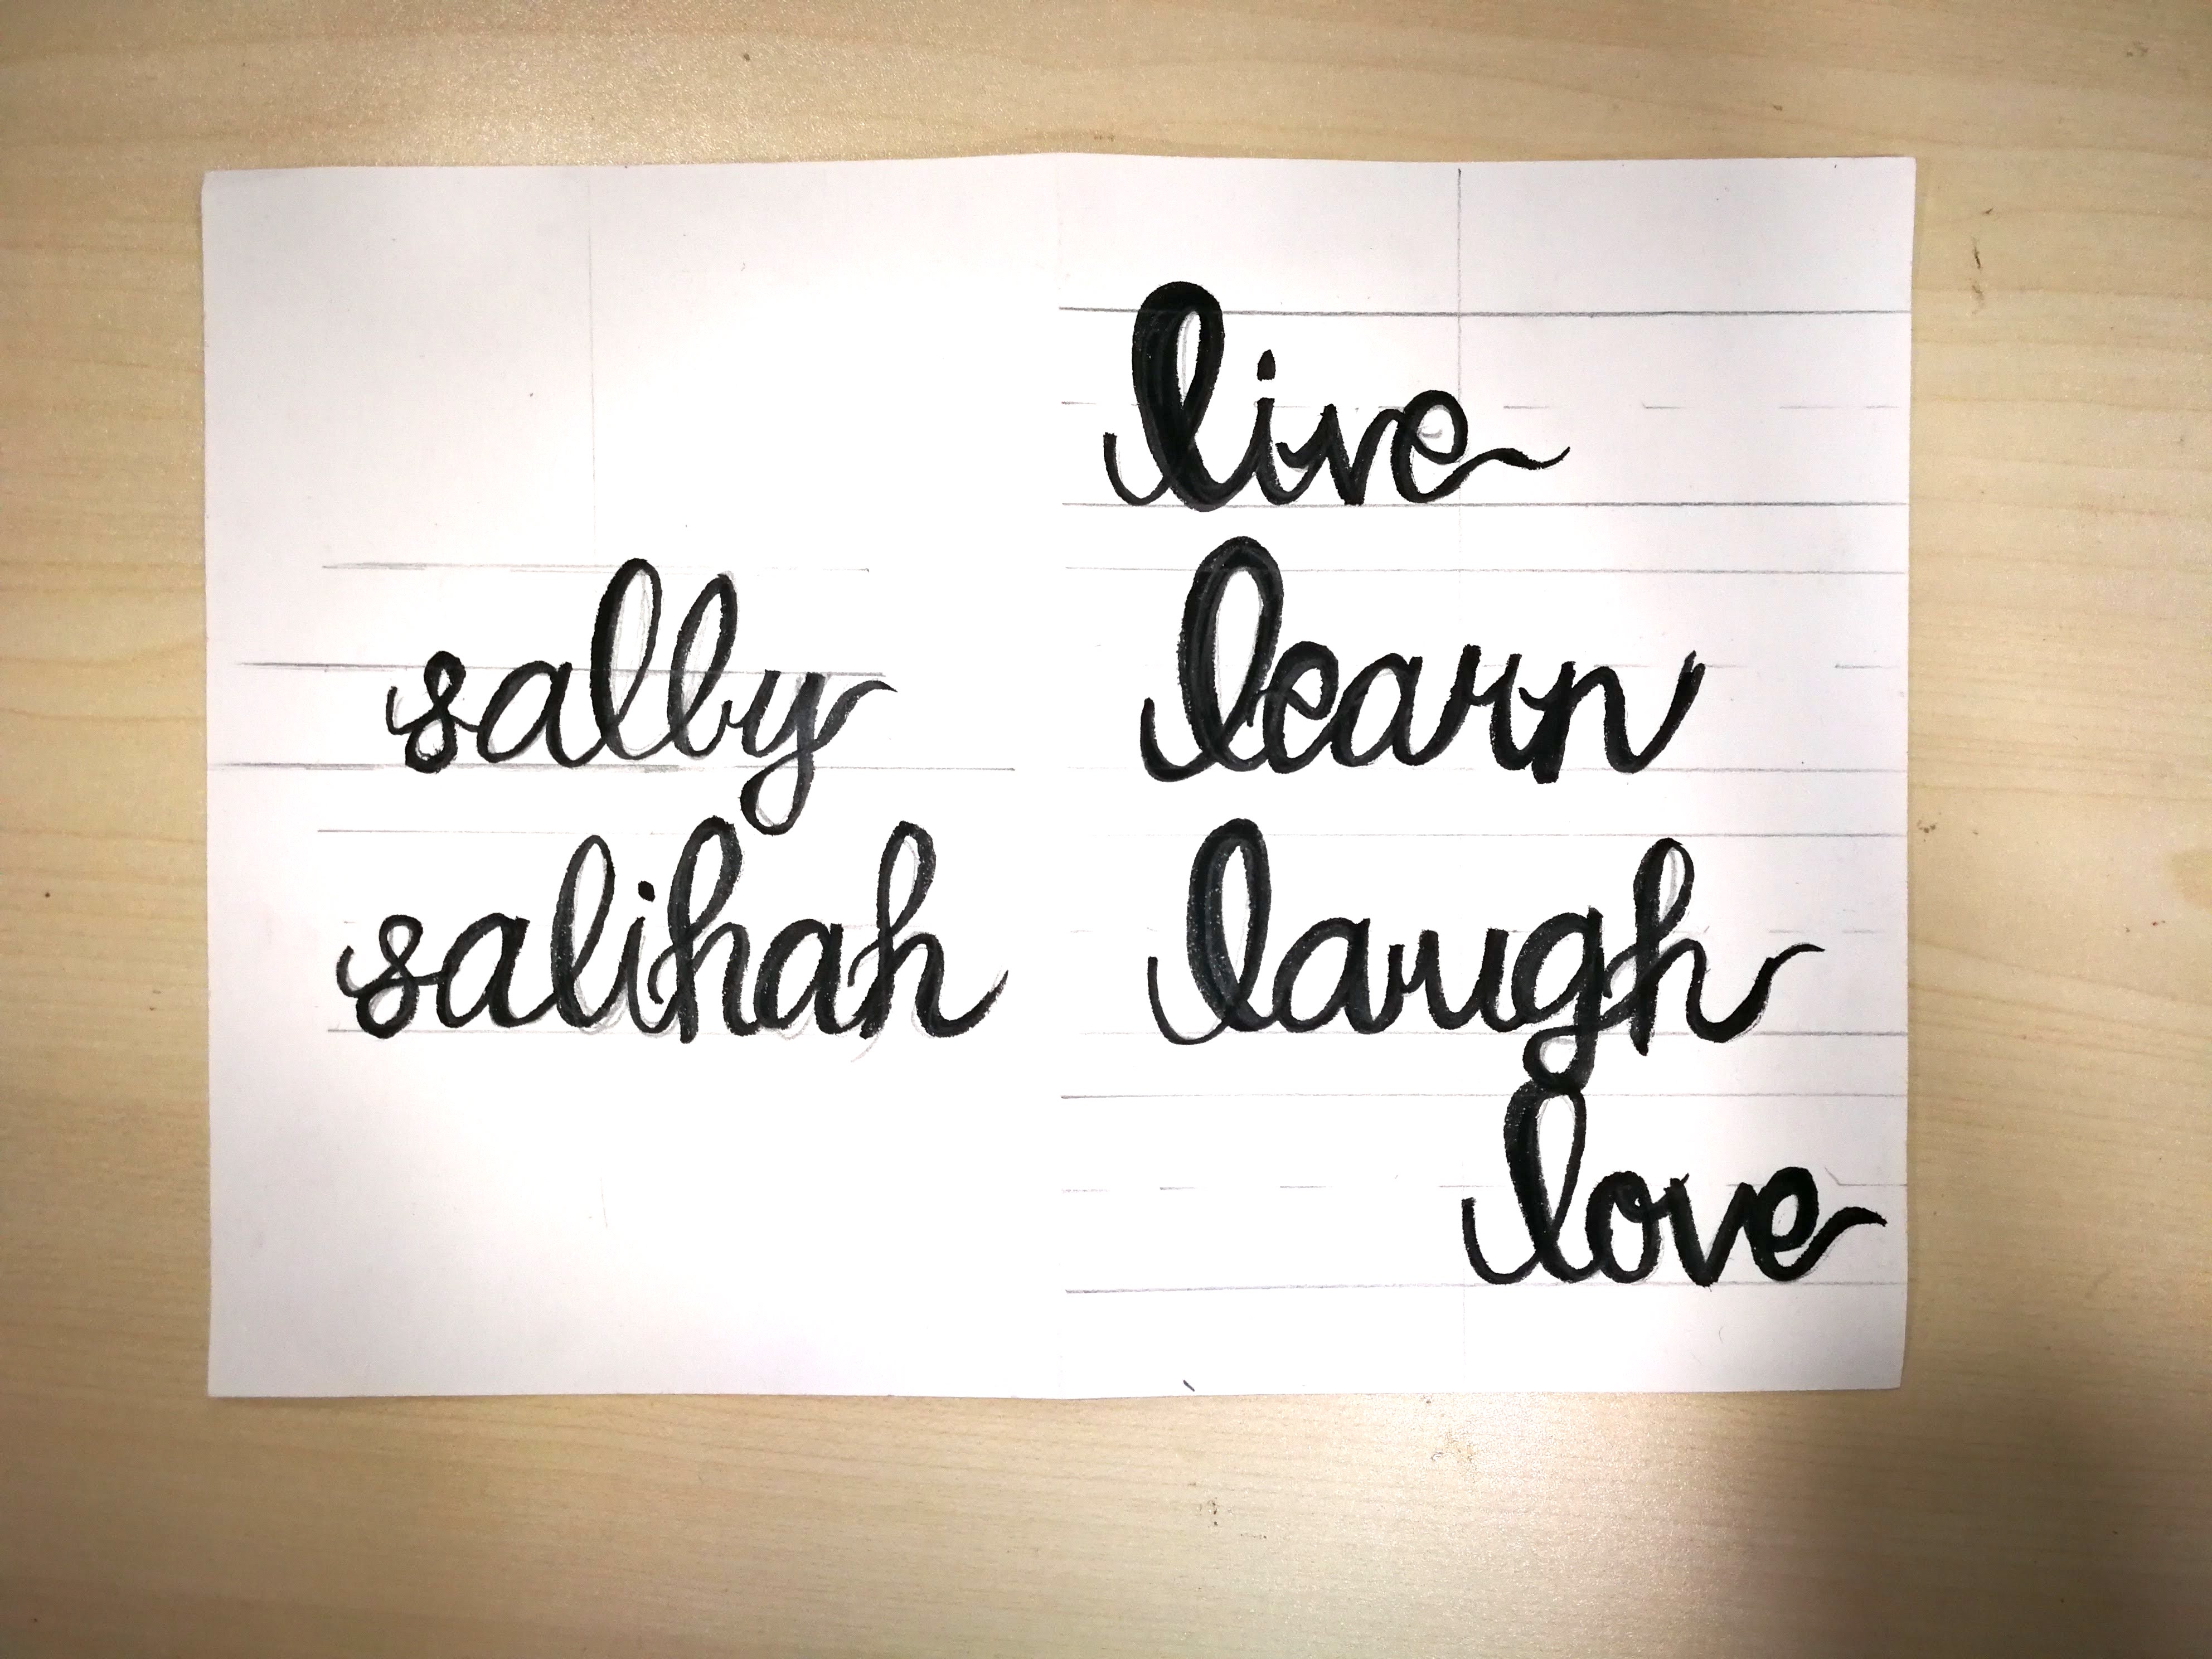 sally
salihah
live
learn
laugh
love